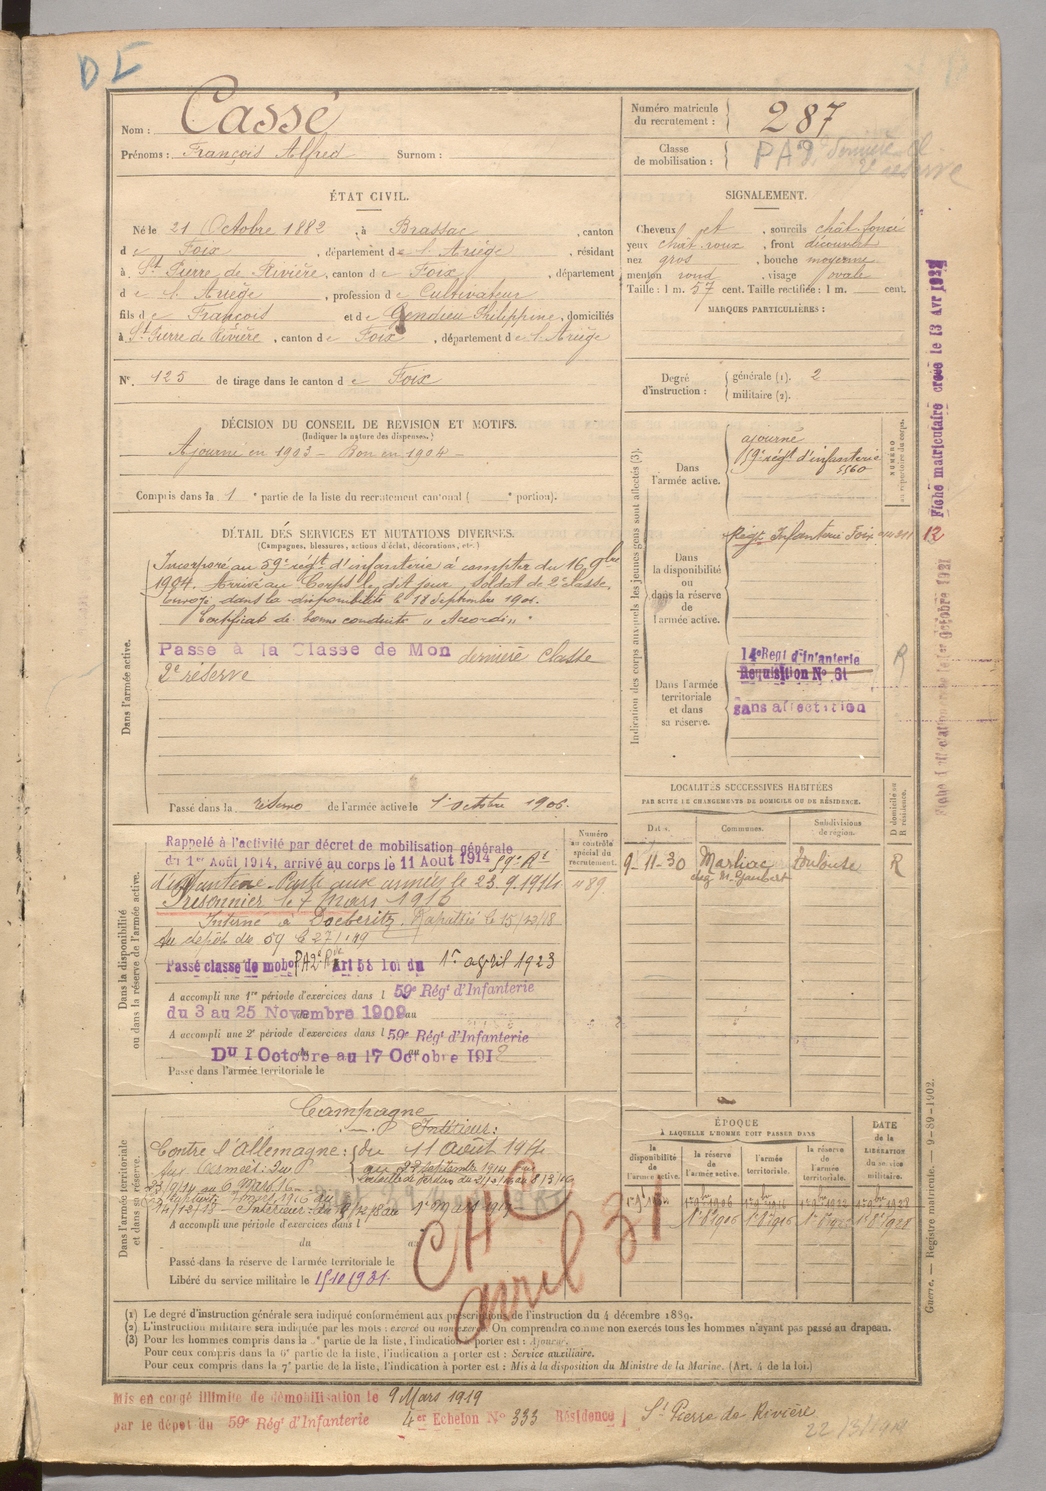 Nom : Cassé
Prénoms : François Alfred Surnom :
Numéro matricule du recrutement : 287
Classe de mobilisation : PA2 dernière Cl.
2e réserve
ÉTAT CIVIL.
Né le 21 Octobre 1882, à Brassac, canton
de Foix, département de l'Ariège, résidant
à St Pierre de Rivière, canton de Foix, département
de l'Ariège, profession de Cultivateur
fils de François et de Gendieu Philippine, domiciliés
à St Pierre de Rivière, canton de Foix, département de l'Ariège
No. 125 de tirage dans le canton de Foix
SIGNALEMENT.
Cheveux et sourcils chât. foncé
yeux chât. roux, front découvert
nez gros, bouche moyenne
menton rond, visage ovale
Taille : 1 m. 57 cent. Taille rectifiée : 1 m. cent.
MARQUES PARTICULIÈRES :
Degré d'instruction : générale (1). 2
militaire (2).
DÉCISION DU CONSEIL DE REVISION ET MOTIFS.
(Indiquer la nature des dispenses.)
Ajourné en 1903 - Bon en 1904 -
Compris dans la 1e partie de la liste du recrutement cantonal ( e portion).
DÉTAIL DES SERVICES ET MUTATIONS DIVERSES.
(Campagnes, blessures, actions d'éclat, décorations, etc.)
Dans l'armée active.
Incorporé au 59e régt d'infanterie à compter du 16 9bre
1904. Arrivé au Corps le dit jour, soldat de 2e classe.
Envoyé dans la disponibilité le 18 Septembre 190
Certificat de bonne conduite "Accordé".
Passé à la Classe de Mon dernière classe
2e réserve
Passé dans la réserve de l'armée active le 1er octobre 190
Indication des corps auxquels les jeunes gens sont affectés (3).
NUMÉRO au répertoire du corps.
Dans l'armée active.
ajourné
59e régt d'infanterie
5560
Dans la disponibilité ou dans la réserve de l'armée active.
Régt Infanterie Foix
12
Dans l'armée territoriale et dans sa réserve.
14e Regt d'Infanterie
Requisition No 61
sans affectation
R
Fiche matriculaire créée le 13 Avr 193
LOCALITÉS SUCCESSIVES HABITÉES
PAR SUITE DE CHANGEMENTS DE DOMICILE OU DE RÉSIDENCE.
Dates. Communes. Subdivisions de région. D domicile ou R résidence.
9-11-30 Marliac Toulouse R
Dans la disponibilité ou dans la réserve de l'armée active.
Numéro au contrôle spécial du recrutement.
489
Rappelé à l'activité par décret de mobilisation générale
du 1er Août 1914, arrivé au corps le 11 Aout 1914 59e Rt
d'Infanterie. Parti aux armées le 23.9.1914
Prisonnier le 7 mars 1916
Interné à Doeberitz. Rapatrié le 15/12/18
Au dépôt du 59 le 27/1/19
Passé classe de mob PA2e Rve Art 58 loi du 1er avril 1923
A accompli une 1re période d'exercices dans l 59e Régt d'Infanterie
du 3 au 25 Novembre 1909 au
A accompli une 2e période d'exercices dans l 59e Régt d'Infanterie
Du 1 Octobre au 17 Octobre 1912
Passé dans l'armée territoriale le
Dans l'armée territoriale et dans sa réserve.
Campagne
Intérieur :
Contre l'Allemagne : du 11 août 1914
au 22 Septembre 1914
aux Armées : du
23/9/14 au 6 Mars 16
14/12/18
A accompli une période d'exercices dans l
du au
Passé dans la réserve de l'armée territoriale le
Libéré du service militaire le 15/10/1931.
CHC
avril 31
ÉPOQUE
À LAQUELLE L'HOMME DOIT PASSER DANS
la disponibilité de l'armée active. la réserve de l'armée active. l'armée territoriale. la réserve de l'armée territoriale.
DATE de la LIBÉRATION du service militaire.
(1) Le degré d'instruction générale sera indiqué conformément aux prescriptions de l'instruction du 4 décembre 1889.
(2) L'instruction militaire sera indiquée par les mots : exercé ou non exercé. On comprendra comme non exercés tous les hommes n'ayant pas passé au drapeau.
(3) Pour les hommes compris dans la 2e partie de la liste, l'indication à porter est : Ajourné.
Pour ceux compris dans la 6e partie de la liste, l'indication à porter est : Service auxiliaire.
Pour ceux compris dans la 7e partie de la liste, l'indication à porter est : Mis à la disposition du Ministre de la Marine. (Art. 4 de la loi.)
Guerre. — Registre matricule. — 9-89-1902.
Mis en congé illimité de démobilisation le 9 Mars 1919
par le dépôt du 59e Régt d'Infanterie 4er Echelon No 333 Résidence St Pierre de Rivière
22/3/1919